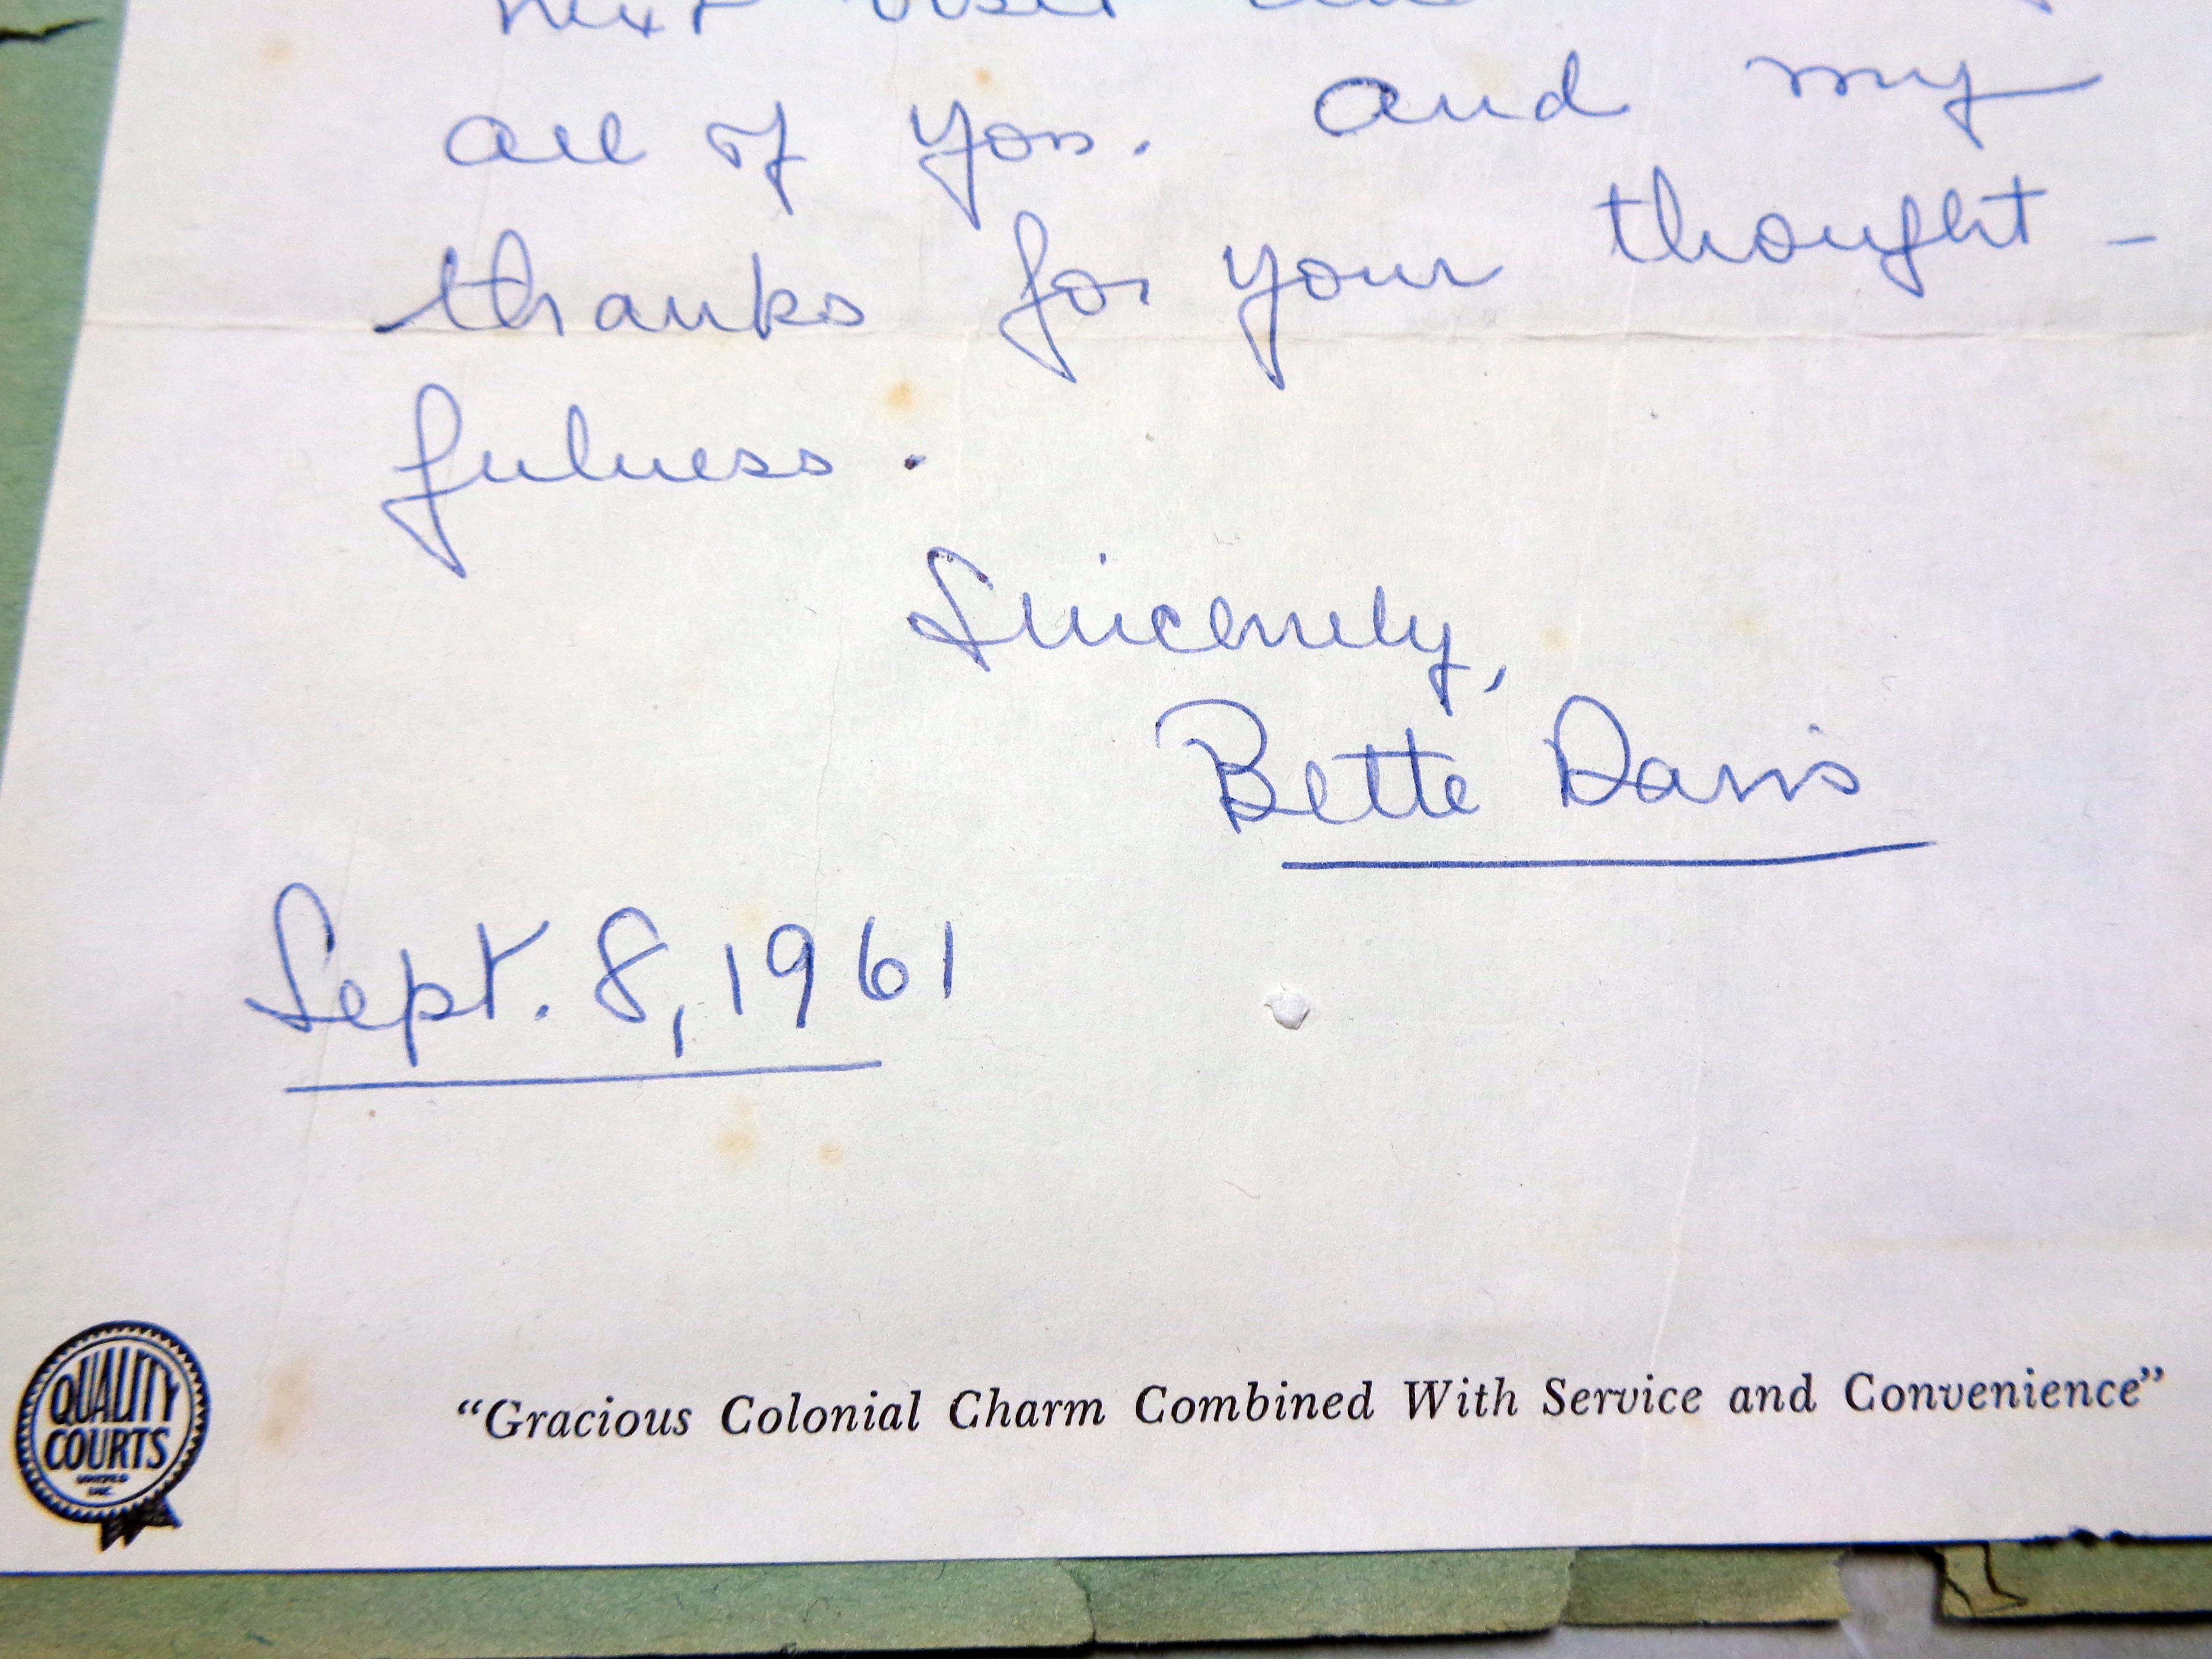 next visit
all of you. and my
thanks for your thought-
fulness.
Sincerely,
Bette Davis
Sept. 8, 1961
QUALITY
COURTS
UNITED
INC.
“Gracious Colonial Charm Combined With Service and Convenience”